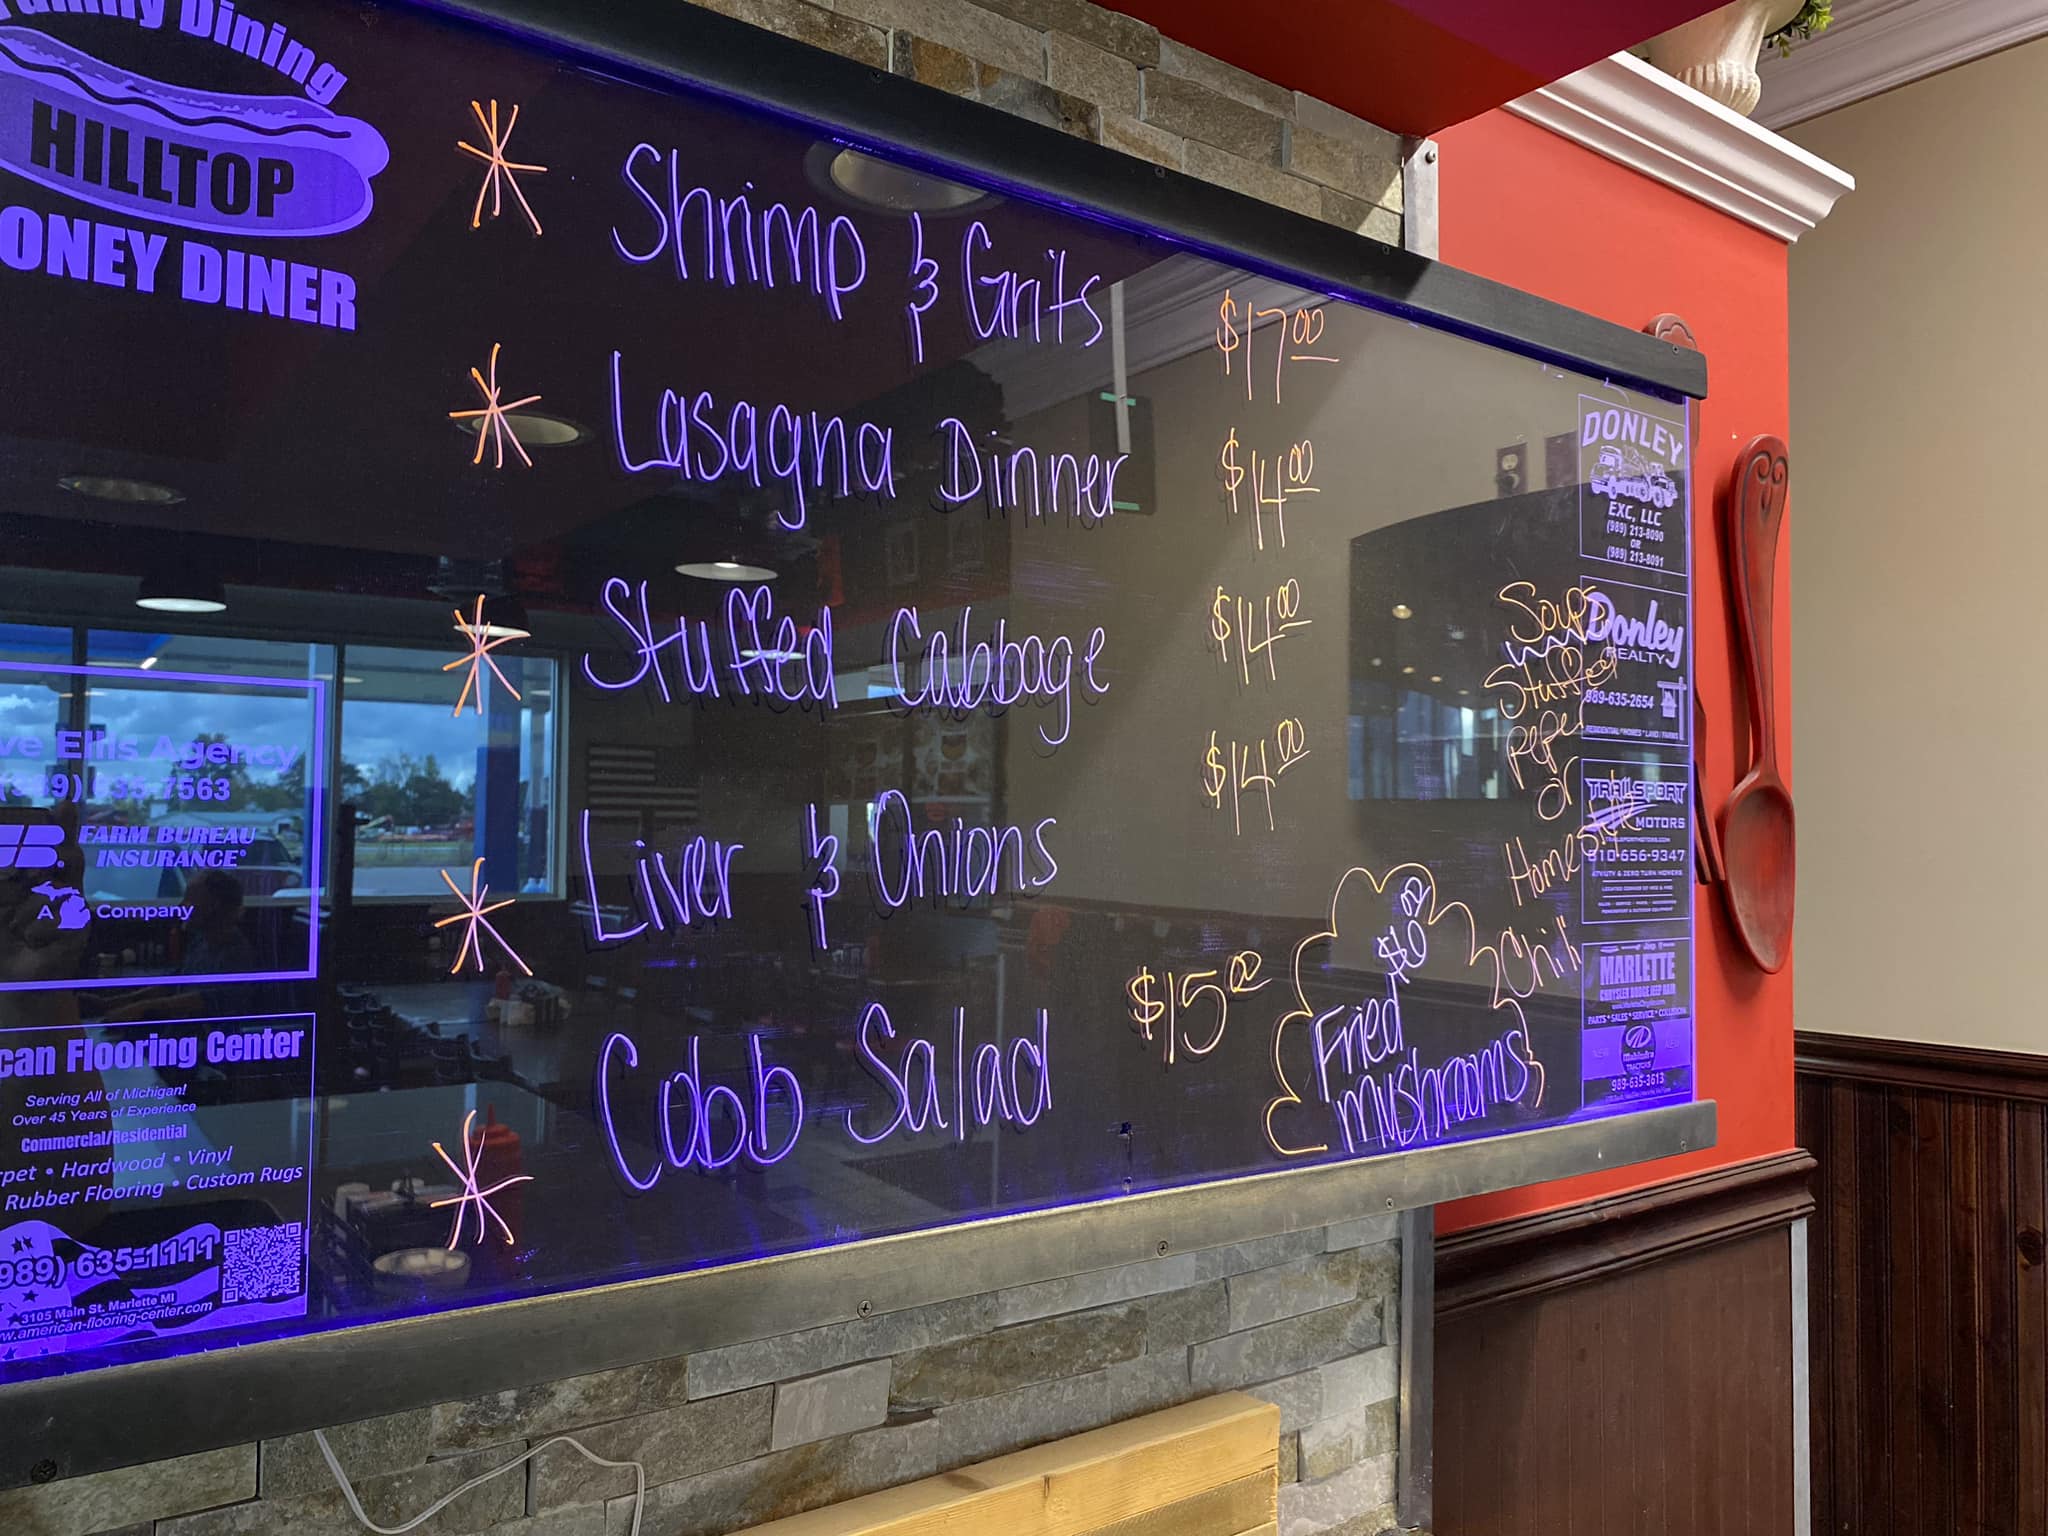 Family Dining
HILLTOP
ONEY DINER
ve Ellis Agency
(989) 635-7563
FARM BUREAU
INSURANCE
A Company
can Flooring Center
Serving All of Michigan!
Over 45 Years of Experience
Commercial/Residential
rpet • Hardwood • Vinyl
Rubber Flooring • Custom Rugs
989) 635-1111
3105 Main St. Marlette MI
w.american-flooring-center.com
Shrimp & Grits $17.00
Lasagna Dinner $14.00
Stuffed Cabbage $14.00
Liver & Onions $14.00
Cobb Salad $15.00
Fried
Mushrooms
Soups
Stuffed
peper
or
Homestyle
Chili
DONLEY
EXC, LLC
(989) 213-8090
OR
(989) 213-8091
Donley
REALTY
989-635-2654
RESIDENTIAL * HOMES * LAND / FARMS
TRAILSPORT
MOTORS
810-656-9347
MARLETTE
CHRYSLER DODGE JEEP RAM
PARTS * SALES * SERVICE * COLLISION
Mahindra
TRACTORS
989-635-3613